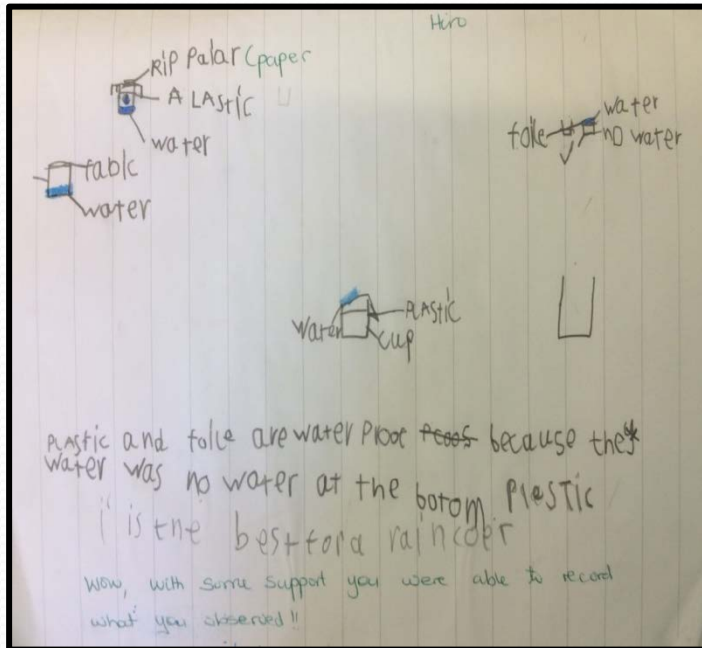 Hiro
RIP PaLar (paper
A LAStic
water
fablc
water
folie
water
no water
water
PLAStic
cup
PLAStic and folie are water Proof because the
water was no water at the botom Plastic
is the best for a raincoer
Wow, with some support you were able to record
what you observed!!